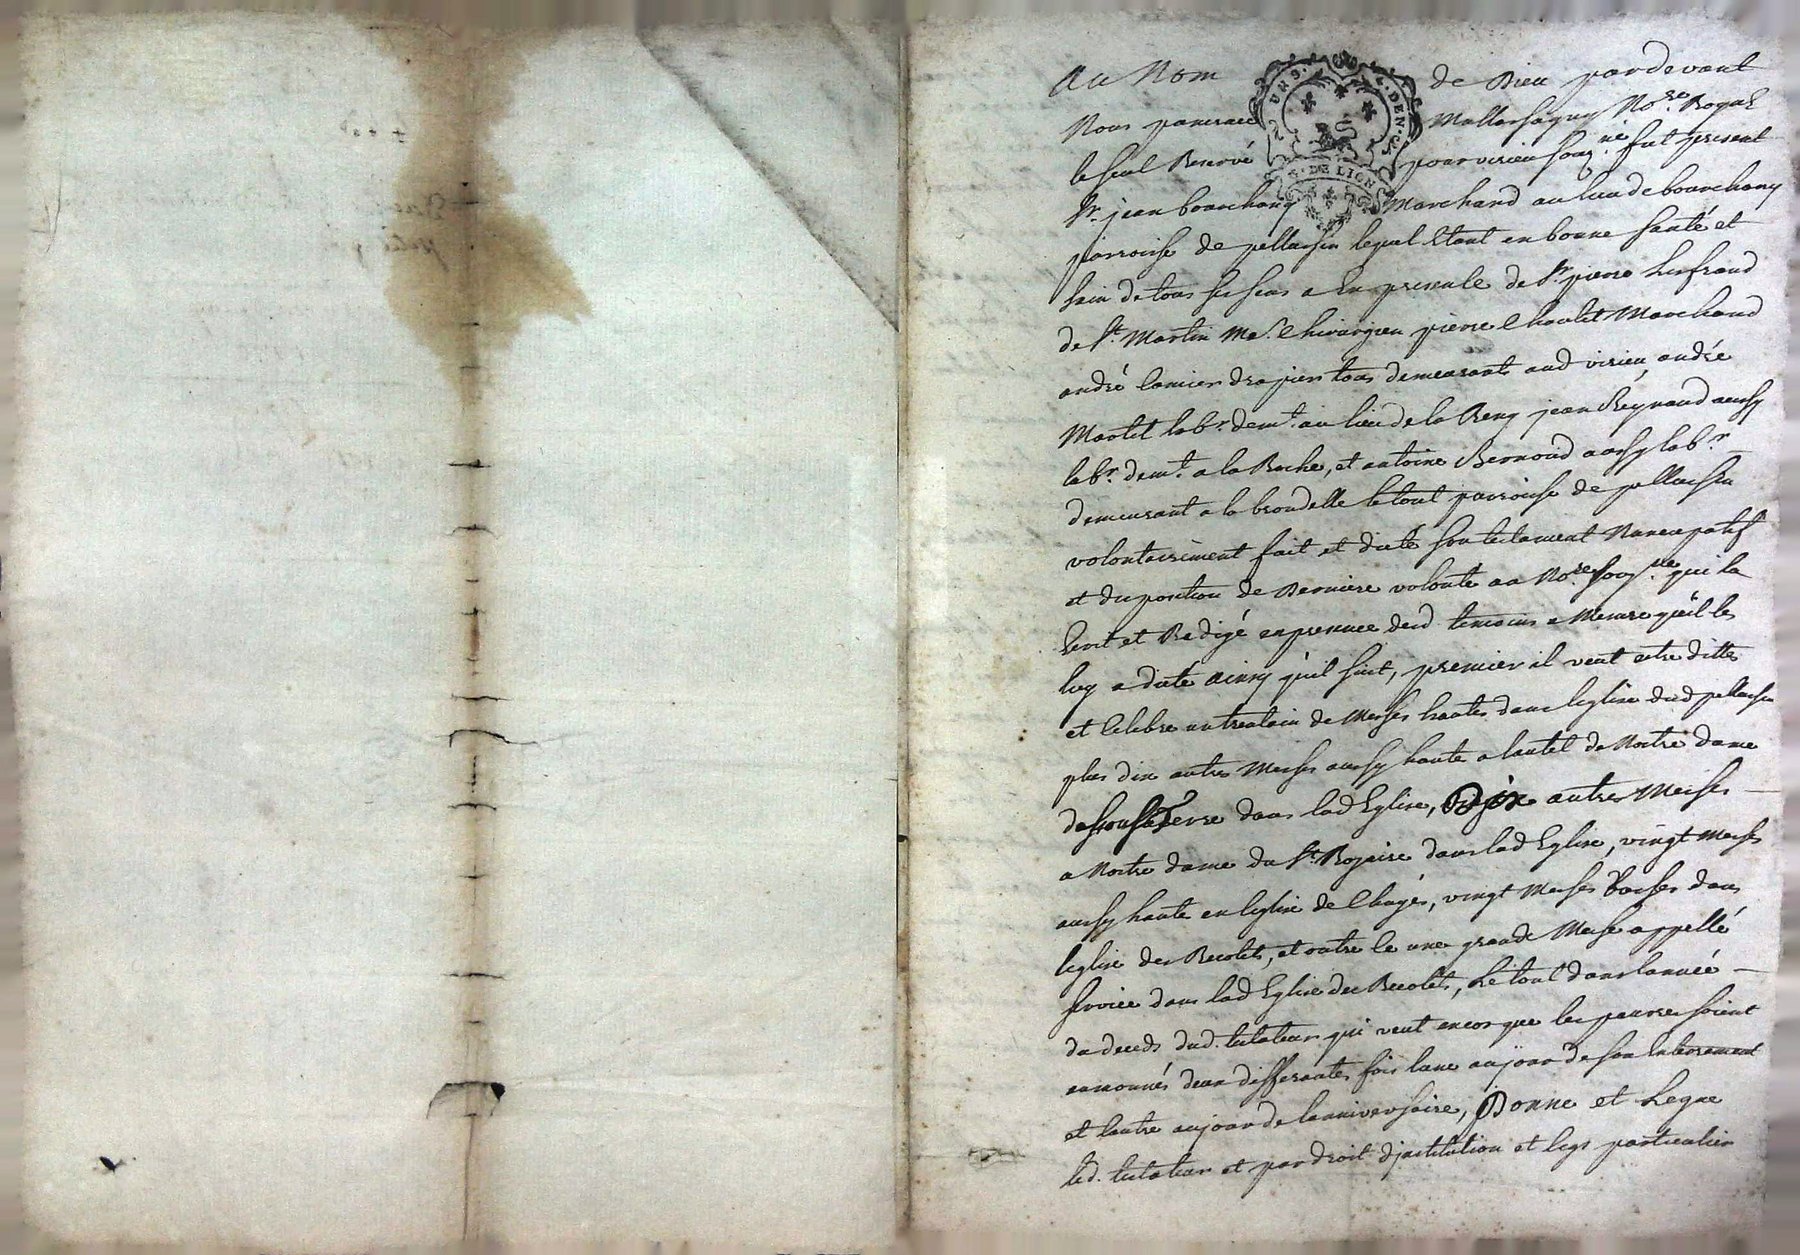 Au Nom de Dieu pardevant
Nous pancrace Mallassagny No.re Royal
le seul Reservé pour virieu souz.né fut present
Sr. jean bourchany Marchand au lieu de bourchany
parroisse de pellussin lequel Etant en bonne santé et
sain de tous ses sens a En presence de Sr. pierre
de St. Martin Me. Chirurgien pierre Choulet Marchand
andré lamier drapier tous demeurants aud virieu, andré
Martel labr. demt. au lieu de la Reny jean Reynaud aussy
labr. demt. a la Roche, et antoine Bernoud aussy labr.
demeurant a la brondelle le tout parroisse de pellussin
volontairement fait et dicté son testament Nuncupatif
et disposition de Derniere volonte au No.re souz.né qui la
Ecrit et Redigé en presence desd. temoins a Mesure qu'il les
luy a dicté ainsy qu'il suit, premier il veut estre dittes
et celebre un trentain de Messes hautes dans leglise dud pellussin
plus dix autres Messes aussy haute a lautel de Nostre dame
de soubs Terre dans lad Eglise, Dix autres Messes
a Nostre dame du St. Rozaire dans lad Eglise, vingt Messes
aussy haute en leglise de Chuyer, vingt Messes basses dans
leglise des Recolets, et outre ce une grande Messe appellé
service dans lad Eglise des Recolets, Le tout dans lannée
du deceds dud. testateur qui veut encor que les pauvres soient
aumonnés deux differantes fois lune au jour de son Enterrement
et lautre au jour de lanniversaire, Donne et Legue
led. testateur et par droit d'jnstitution et legs particulier
UNS. DEN.rs
G. DE LION